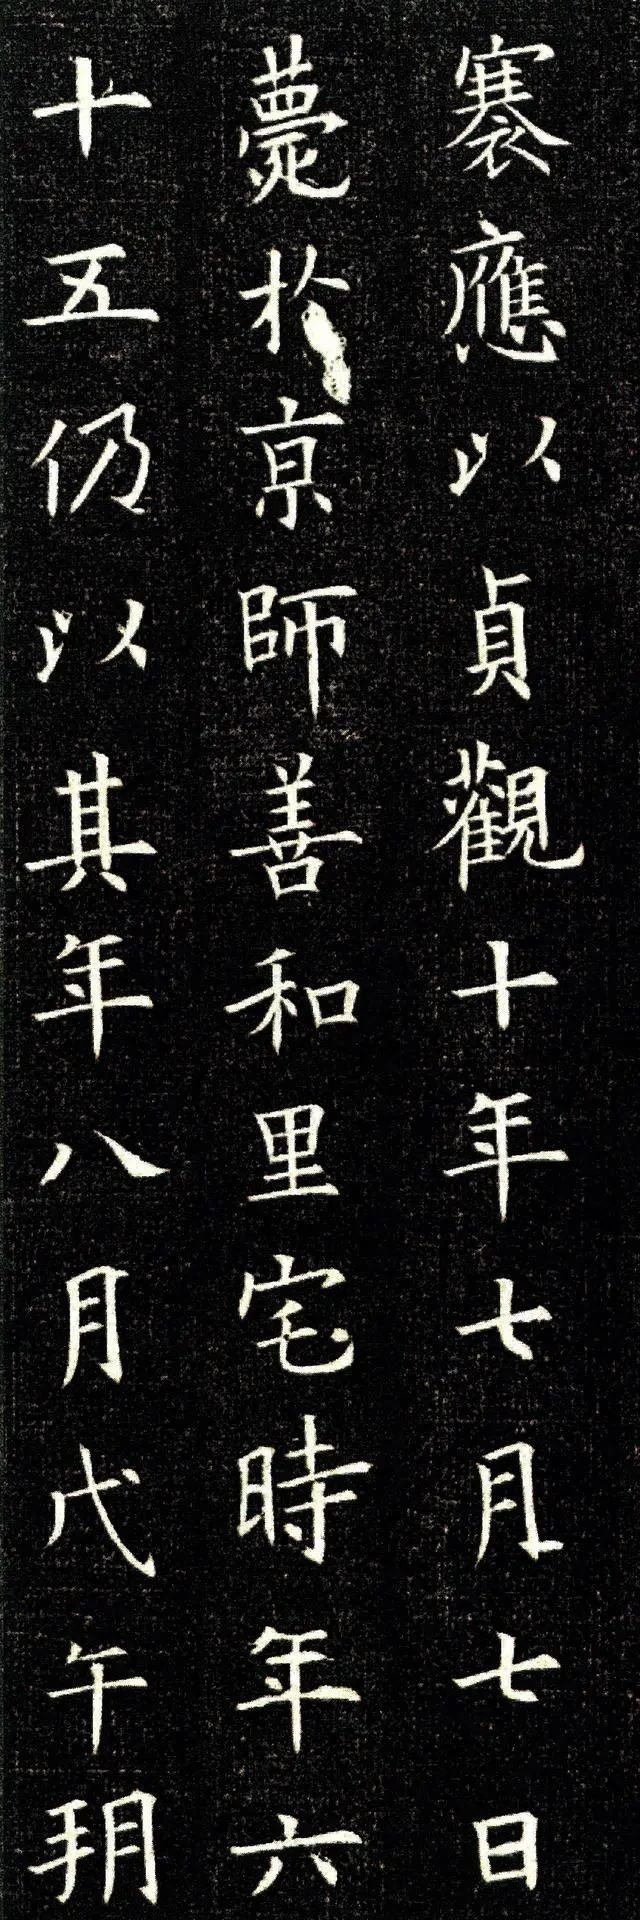 褰應以貞觀十年七月七日
薨於亰師善和里宅時年六
十五仍以其年八月戊午朔